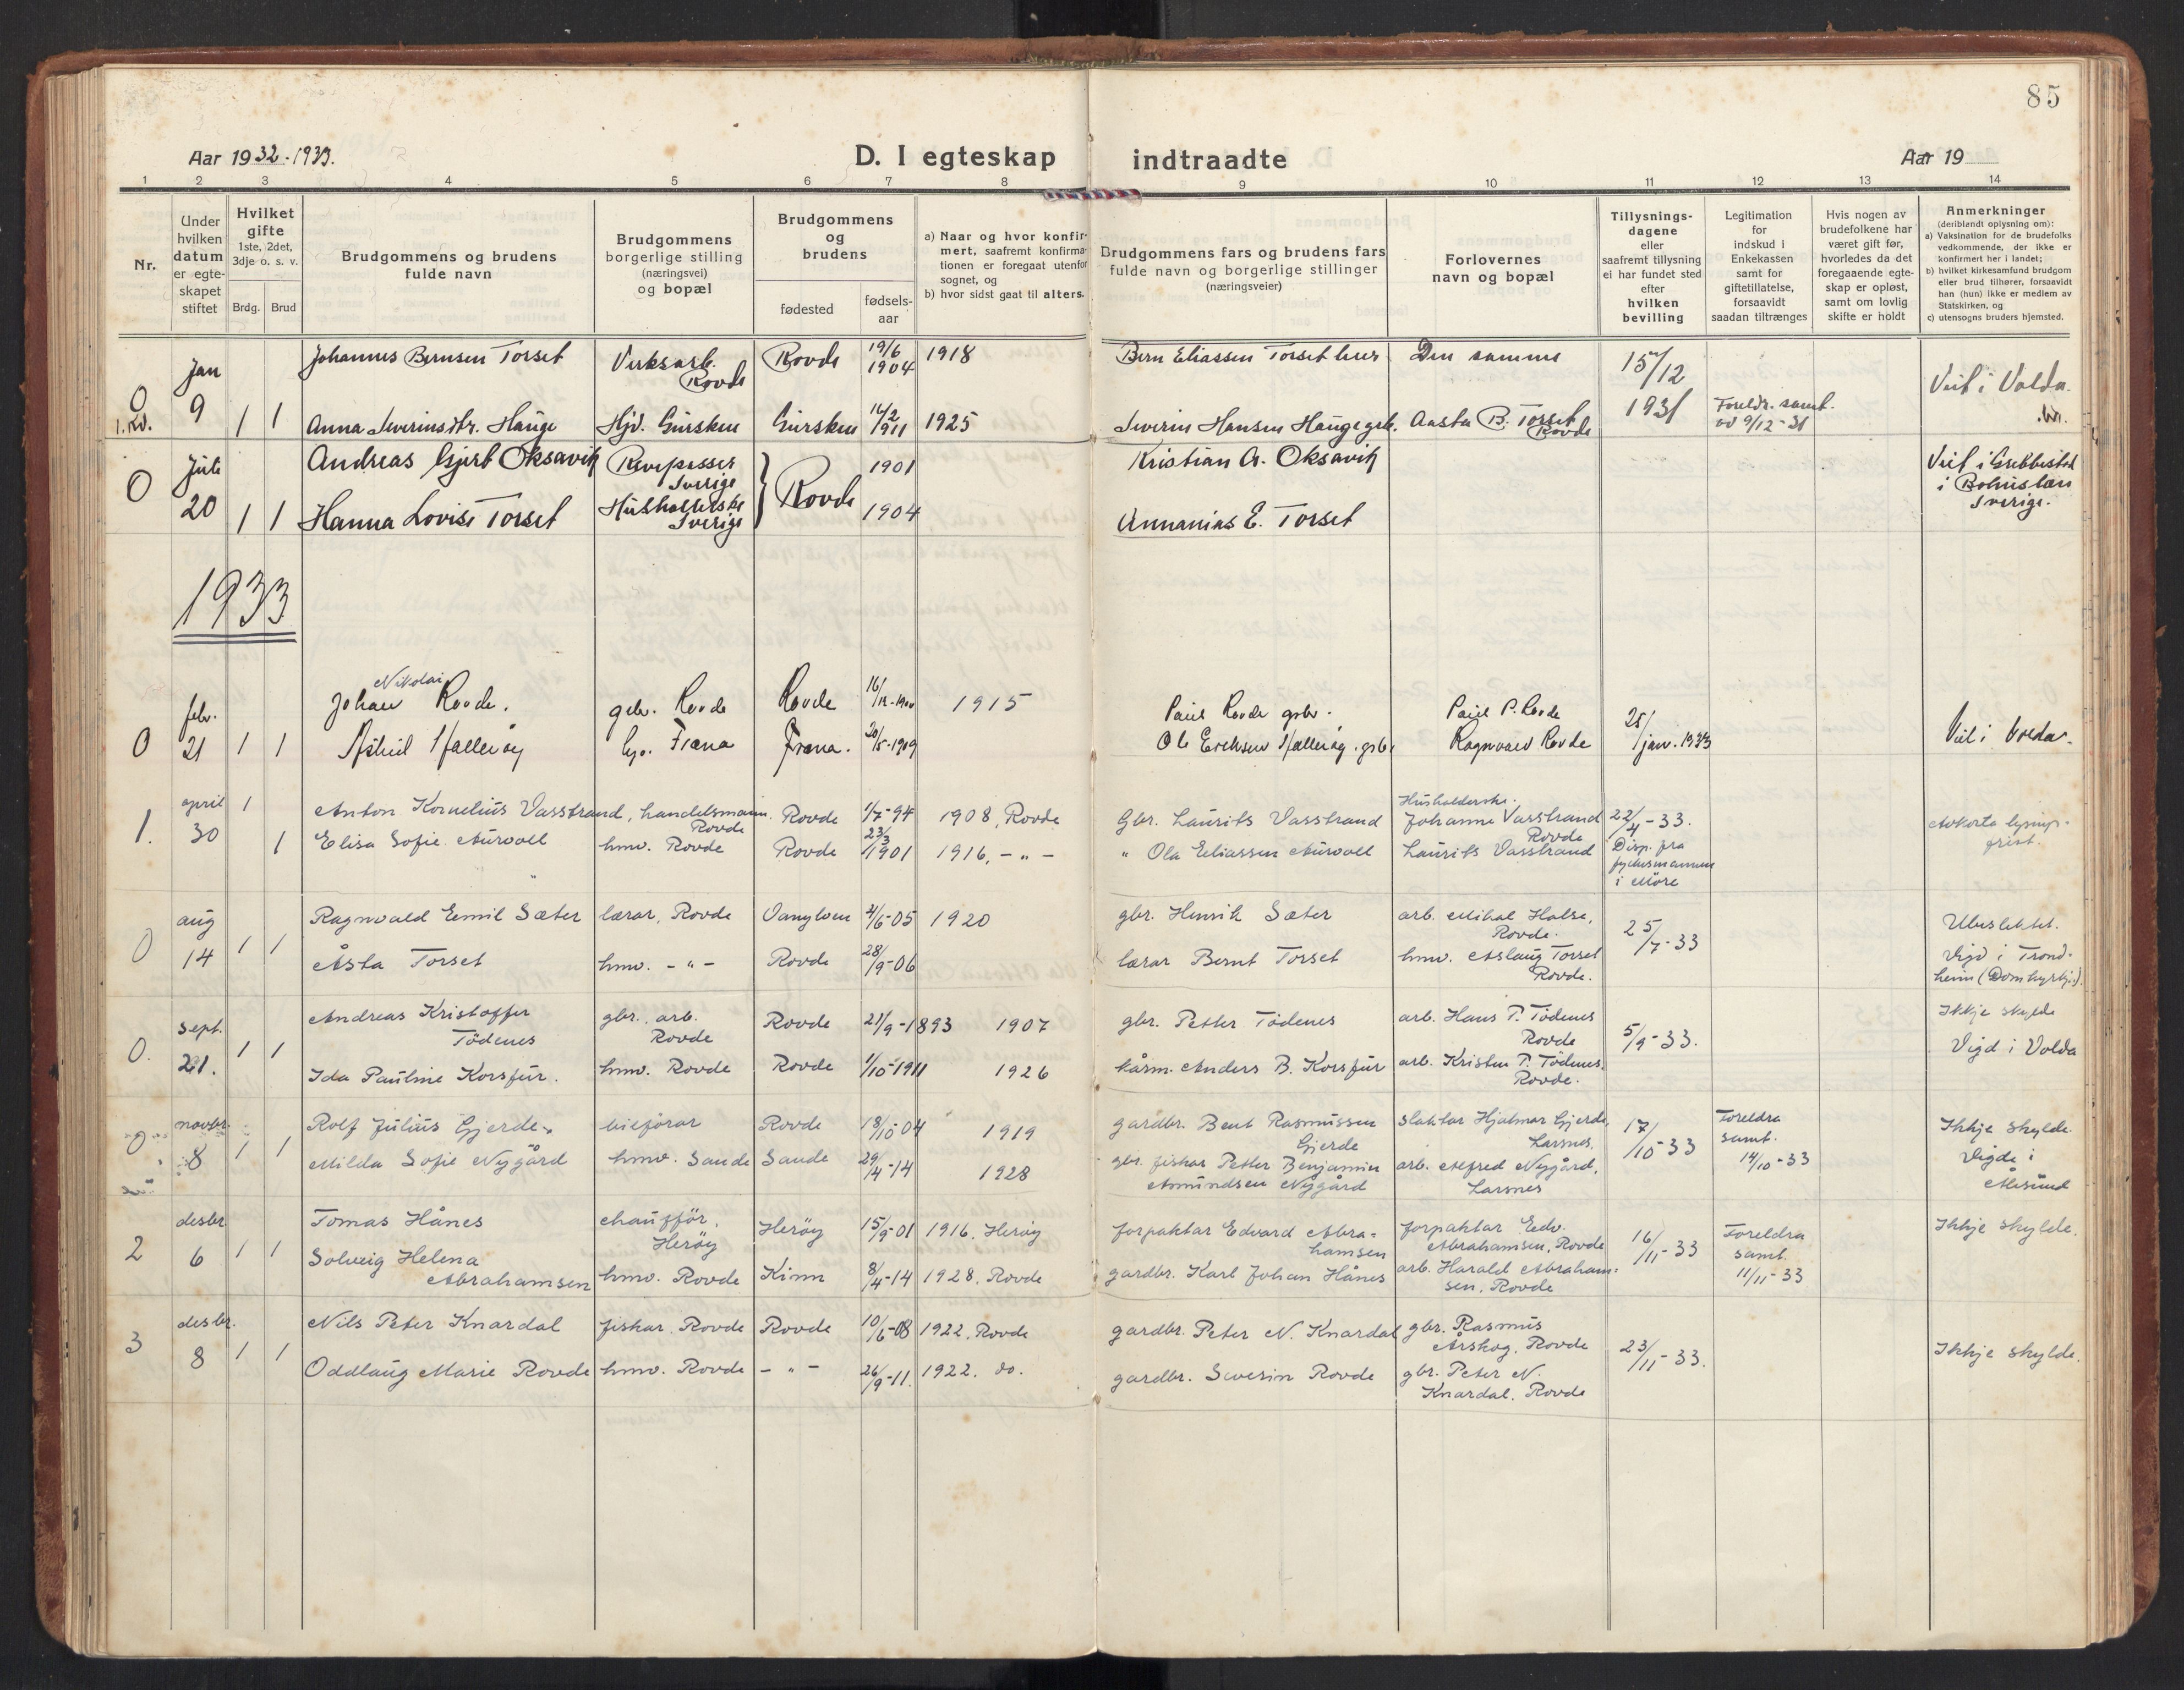 85
Aar 1932-1933.
D. I egteskap indtraadte
Aar 19
1 2 3 4 5 6 7 8 9 10 11 12 13 14
Nr.
Under
hvilken
datum
er egte-
skapet
stiftet
Hvilket
gifte
1ste, 2det,
3dje o. s. v.
Brdg. Brud
Brudgommens og brudens
fulde navn
Brudgommens
borgerlige stilling
(næringsvei)
og bopæl
Brudgommens
og
brudens
fødested
fødsels-
aar
a) Naar og hvor konfir-
mert, saafremt konfirma-
tionen er foregaat utenfor
sognet, og
b) hvor sidst gaat til alters.
Brudgommens fars og brudens fars
fulde navn og borgerlige stillinger
(næringsveier)
Forlovernes
navn og bopæl
Tillysnings-
dagene
eller
saafremt tillysning
ei har fundet sted
efter
hvilken
bevilling
Legitimation
for
indskud i
Enkekassen
samt for
giftetillatelse,
forsaavidt
saadan tiltrænges
Hvis nogen av
brudefolkene har
været gift før,
hvorledes da det
foregaaende egte-
skap er opløst,
samt om lovlig
skifte er holdt
Anmerkninger
(deriblandt oplysning om):
a) Vaksination for de brudefolks
vedkommende, der ikke er
konfirmert her i landet;
b) hvilket kirkesamfund brudgom
eller brud tilhører, forsaavidt
han (hun) ikke er medlem av
Statskirken, og
c) utensogns bruders hjemsted.
Jan Johannes Bernsen Torset Verksarb. Rovde 19/6 1918 Bern Eliassen Torset Den samme 15/12
0 Rovde 1904 Viet i Volda.
9 1 1 Anna Severinsdtr. Hauge Hjv. Gursken Gursken 14/2 1911 1925 Severin Hansen Hauge grb. Aasta B. Torset 1931 Foreldr. samt.
Rovde 9/12-31
Juli Andreas Gjert Oksavik Revepasser 1901 Kristian A. Oksavik Viet i Grebbestad
0 Sverige Rovde i Bohuslæn
20 1 1 Hanna Lovise Torset Husholderske 1904 Annanias E. Torset Sverige.
Sverige
1933
Nikolai
febr. Johan Rovde. gbr. Rovde Rovde 16/12-1900 1915 Paul Rovde grbr. Paul P. Rovde 25/
0 21 1 1 Astrid hjv. Fræna Fræna. 20/5-1909 Ole Eriksen Ragnvald Rovde jan. 1933 Viet i Volda.
april 1 Anton Kornelius Vasstrand, handelsmann. Rovde 1/7-94 1908, Rovde Gbr. Laurits Vasstrand Husholderske. Johanne Vasstrand 22/4-33.
Rovde Rovde
1. 30 1 Elisa Sofie Aurvoll hmv. Rovde Rovde 23/3 1901 1916, -"- " Ola Eliassen Aurvoll Laurits Vasstrand Disp. fra
fylkesmannen
i Møre
aug Ragnvald Emil Sæter lærar, Rovde Vanylven 4/6-05 1920 gbr. Henrik Sæter arb. Mikal Halse, 25/7-33
Rovde.
0 14 1 1 Åsta Torset hmv. -"- Rovde 28/9-06 lærar Bernt Torset hmv. Aslaug Torset Vigd i Trond-
Rovde. heim (Domkyrkja).
sept. Andreas Kristoffer gbr. arb. Rovde 21/9-1893 1907 gbr. Petter Tødenes arb. Hans P. Tødenes Ikkje skylde
Tødenes Rovde Rovde 5/9-33.
0. 21. 1 1 Ida Pauline Korsfur. hmv. Rovde Rovde 1/10-1911 1926 kårm. Anders B. Korsfur arb. Kristen P. Tødenes, Vigd i Volda
Rovde.
novbr. Rolf Julius Gjerde. bilførar Rovde 18/10-04 1919 gardbr. Bent Rasmussen slaktar Hjalmar Gjerde, 17/10-33 Foreldra Ikkje skylde
Gjerde Larsnes. samt. 14/10-33 Vigde i
0 8 1 1 Milda Sofie Nygård hmv. Sande Sande 29/4-14 1928 gbr. fiskar Petter Benjamin arb. Alfred Nygård, Ålesund
Amundsen Nygård Larsnes
desbr. Tomas Hånes chauffør, Herøy 15/9-01 1916. Herøy forpaktar Edvard Abra- forpaktar Edv. 16/11-33 Foreldra Ikkje skylde.
Herøy hamsen Abrahamsen, Rovde samt.
2 6 1 1 Solveig Helena hmv. Rovde Kinn 8/4-14 1928. Rovde gardbr. Karl Johan Hånes arb. Harald Abraham- 11/11-33
Abrahamsen sen, Rovde
desbr. Nils Peter Knardal fiskar. Rovde Rovde 10/6-08 1922. Rovde gardbr. Peter N. Knardal gbr. Rasmus
Årskog, Rovde 23/11-33. Ikkje skylde.
3 8 1 1 Oddlaug Marie Rovde hmv. Rovde -"- 26/9-11. 1922. do. gardbr. Severin Rovde gbr. Peter N.
Knardal. Rovde